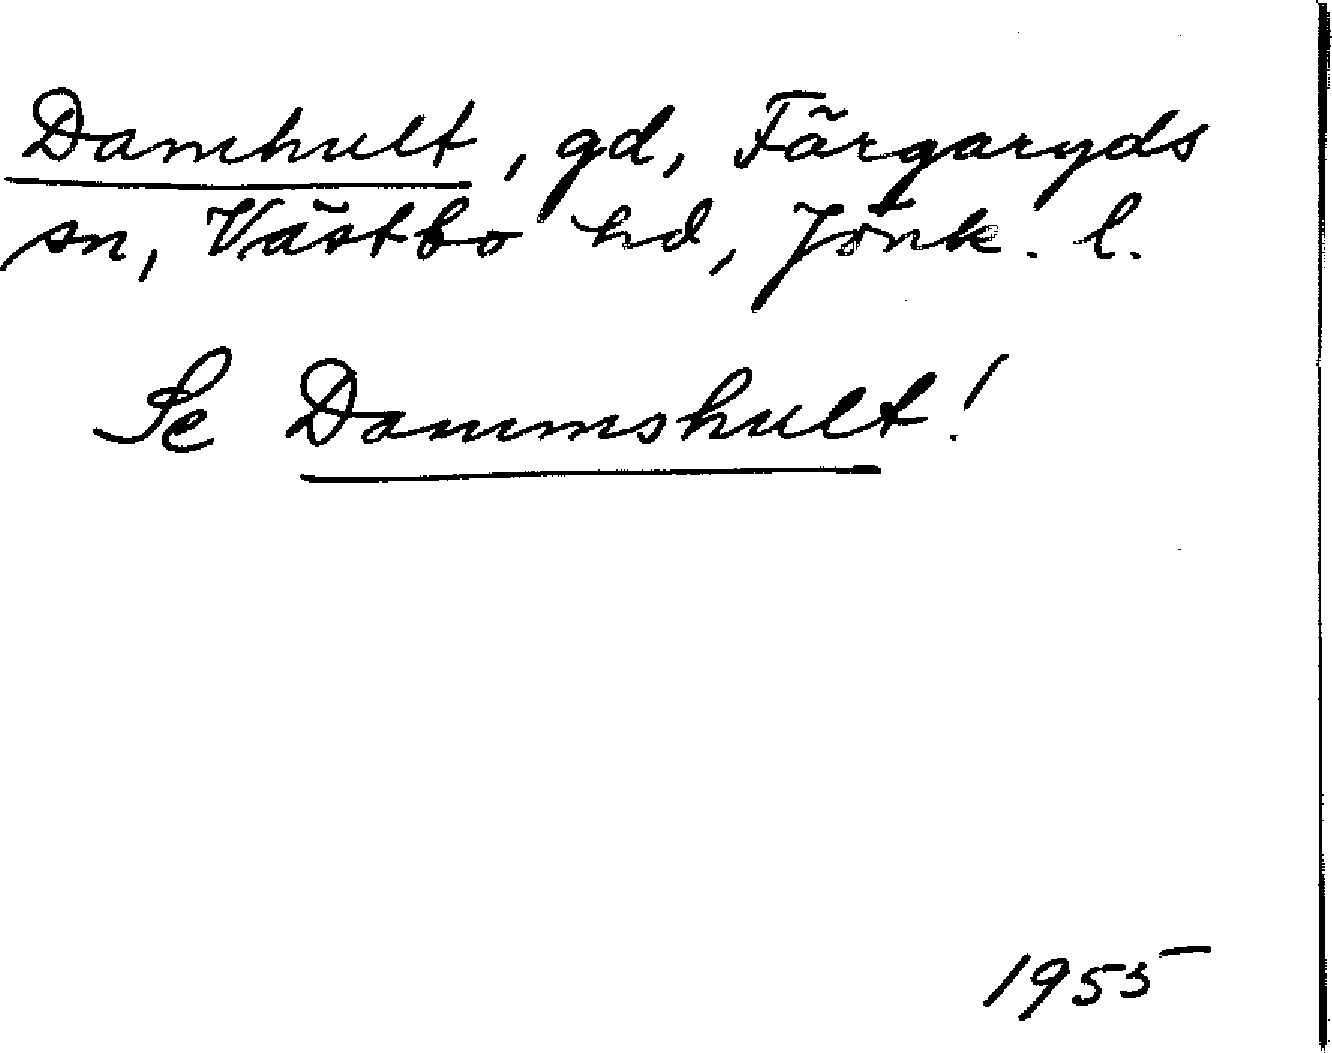 Damhult, gd, Färgaryds
sn, Västbo hd, Jönk. l.
Se Dammshult!
1955